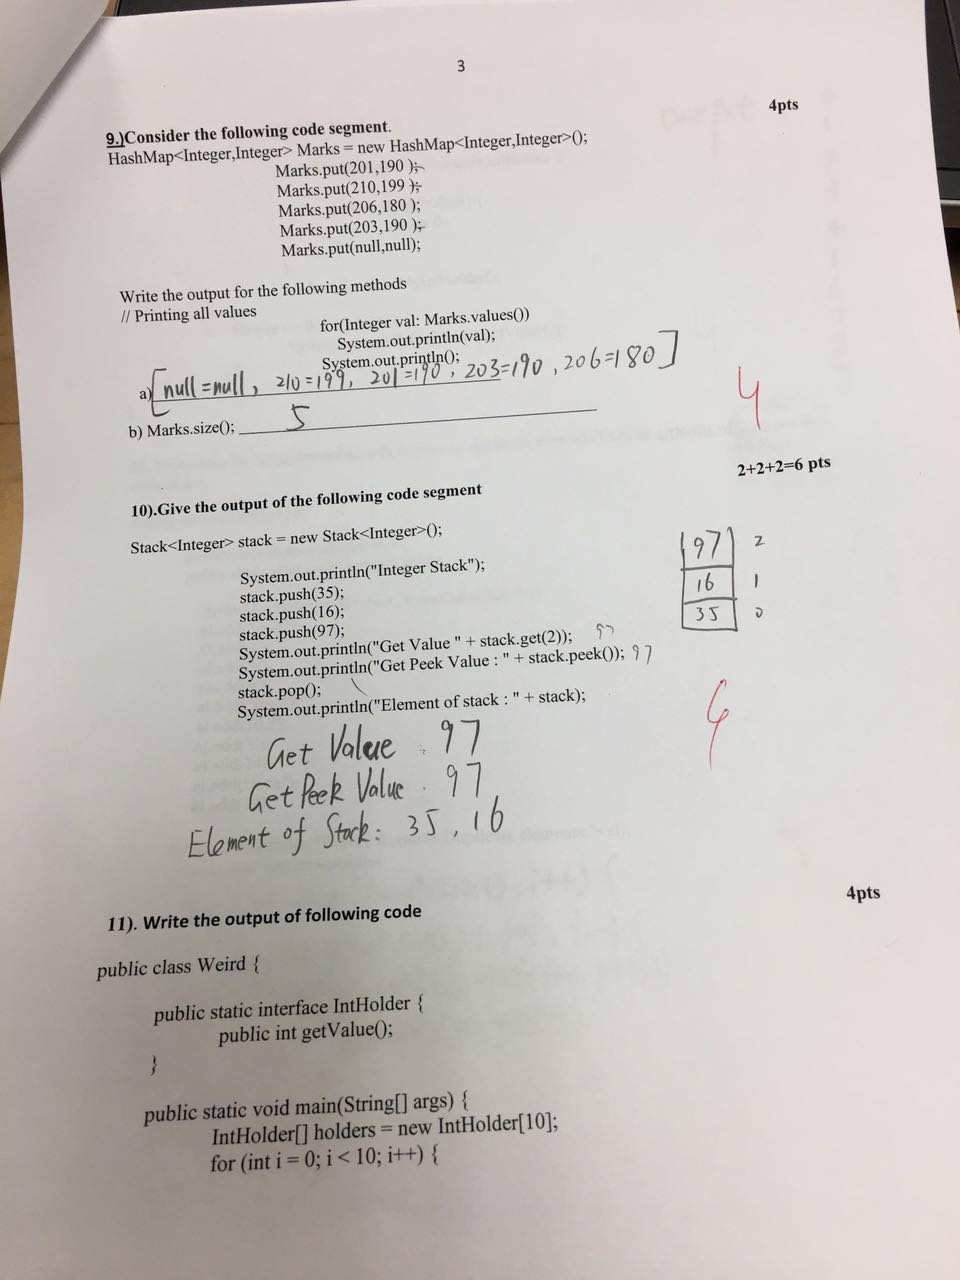 3
4pts
9.)Consider the following code segment.
HashMap<Integer,Integer> Marks = new HashMap<Integer,Integer>();
Marks.put(201,190 );
Marks.put(210,199 );
Marks.put(206,180 );
Marks.put(203,190 );
Marks.put(null,null);
Write the output for the following methods
// Printing all values
for(Integer val: Marks.values())
System.out.println(val);
System.out.println();
a) [null=null, 210=199, 201=190, 203=190, 206=180]
4
b) Marks.size(); 5
2+2+2=6 pts
10).Give the output of the following code segment
Stack<Integer> stack = new Stack<Integer>();
97 2
16 1
35 0
System.out.println("Integer Stack");
stack.push(35);
stack.push(16);
stack.push(97);
System.out.println("Get Value " + stack.get(2)); 97
System.out.println("Get Peek Value : " + stack.peek()); 97
stack.pop();
System.out.println("Element of stack : " + stack);
Get Value : 97
Get Peek Value . 97
Element of Stack: 35, 16
4pts
11). Write the output of following code
public class Weird {
public static interface IntHolder {
public int getValue();
}
public static void main(String[] args) {
IntHolder[] holders = new IntHolder[10];
for (int i = 0; i < 10; i++) {